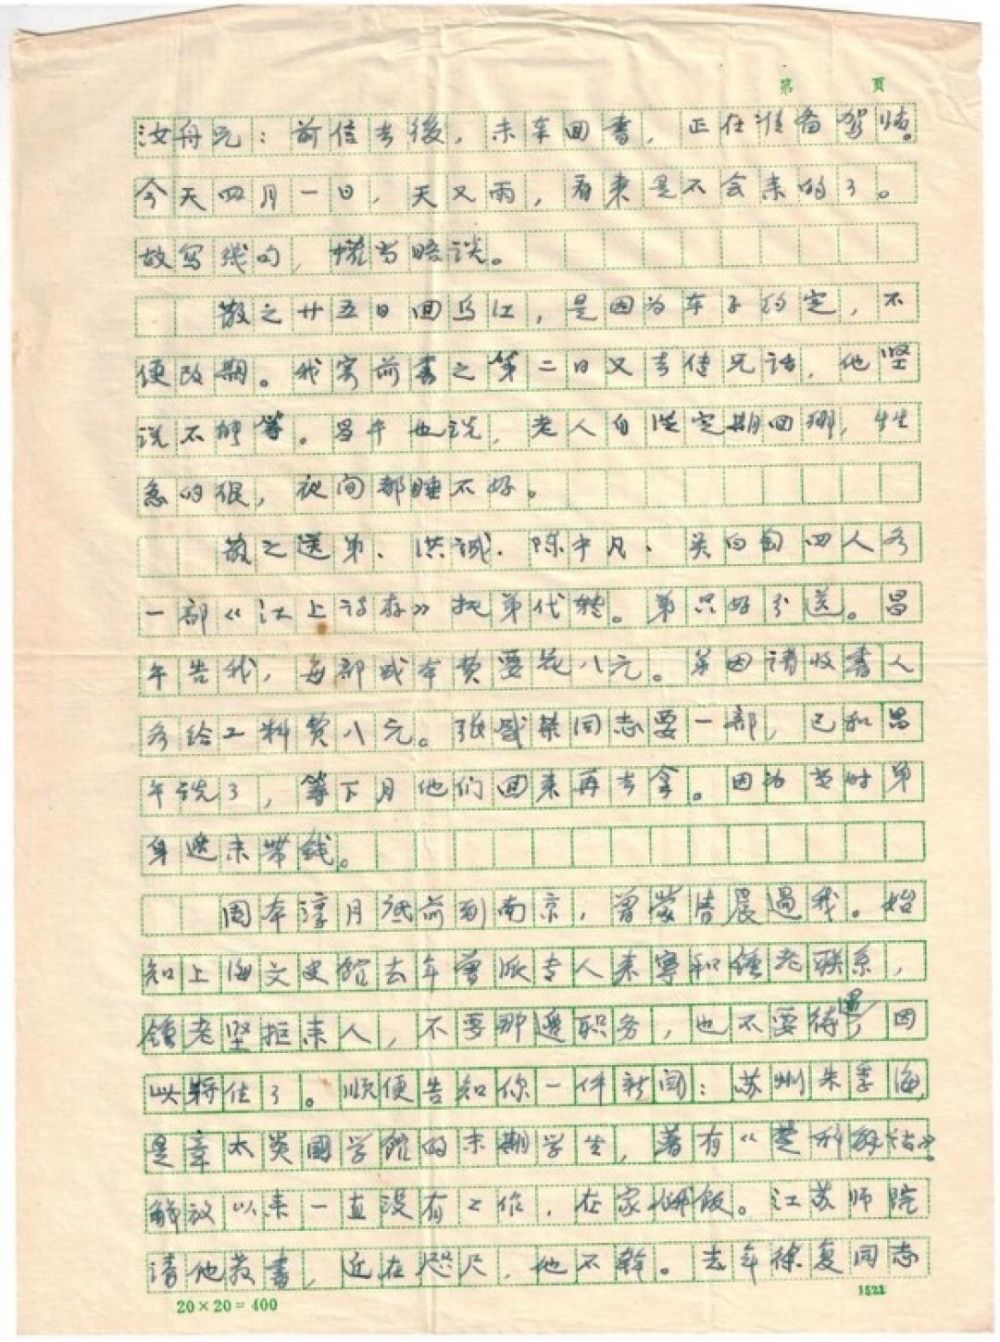 第 页
汝舟兄：前信去後，未奉回書，正在准备驾临。
今天四月一日，天又雨，看来是不会来的了。
故写幾句，権当晤谈。
散之廿五日回乌江，是因为车子约定，不
便改期。我寄前書之第二日又去传兄话，他坚
说不能等。昌午也说，老人自從定期回，性
急的很，夜间都睡不好。
散之送弟、洪诚、陈中凡、吴白匋四人各
一部《江上诗存》托弟代转。弟只好分送。昌
午告我，每部成本费要花八元。弟因请收書人
各给工料费八元。张盛荣同志要一部，已和昌
午说了，等下月他们回来再去拿。因为当时弟
身邊未带钱。
周本淳月底前到南京，曾蒙清晨過我。始
知上海文史館去年曾派专人来寧和鍾老联系，
鍾老坚拒来人，不要那邊职务，也不要待遇，因
以转住了。順便告知你一件新闻：苏州朱季海，
是章太炎國学館的末期学生，著有《楚辞解诂》。
解放以来一直没有工作，在家啃饭。江苏师院
请他教書，近在咫尺，他不幹。去年徐复同志
20×20=400
1521